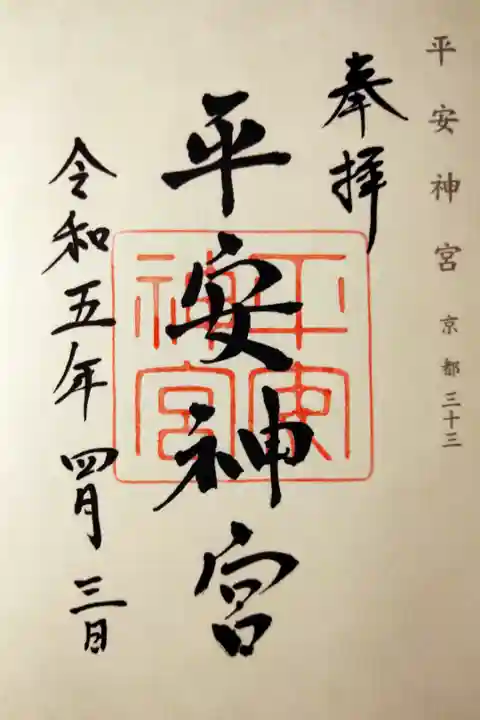 平安神宮 京都 三十三
奉拝
平安神宮
平安
神宮
令和五年 四月 三日